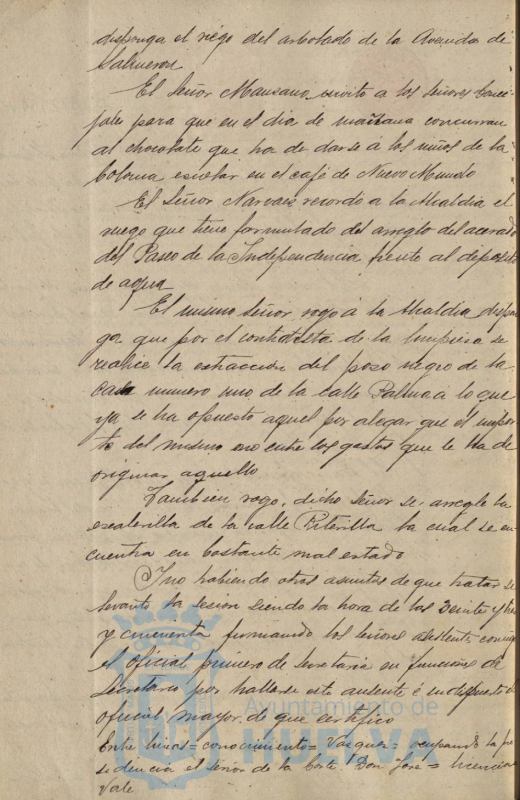 disponga el riego del arbolado de la Avenida de
Salmeron
El Señor Manzano invito a los Señores Conce-
jales para que en el dia de mañana concurran
al chocolate que ha de darse á los niños de la
Colonia escolar en el café de Nuevo Mundo
El Señor Narvaes recordo a la Alcaldia el
ruego que tiene formulado del arreglo del acerado
del Paseo de la Independencia frente al deposito
de agua
El mismo Señor rogo á la Alcaldia dispon
ga que por el contratista de la limpieza se
realice la extracción del pozo negro de la
casa numero uno de la calle Palma á lo que
ya se ha opuesto aquel por alegar que el impor
te del mismo no cubre los gastos que le ha de
originar aquello
Tambien rogo, dicho Señor se arregle la
escalerilla de la calle la cual se en-
cuentra en bastante mal estado
Y no habiendo otros asuntos de que tratar se
levanto la sesion siendo la hora de las veinte y tres
y cincuenta firmando los señores asistentes conmigo
el oficial primero de Secretaria en funciones de
Secretario por hallarse este ausente é indispuesto el
oficial mayor de que certifico
Entre lineas = conocimiento = Vazquez = ocupando la pre
sidencia el señor de la Corte Don José =
Vale
Ayuntamiento de
HUELVA